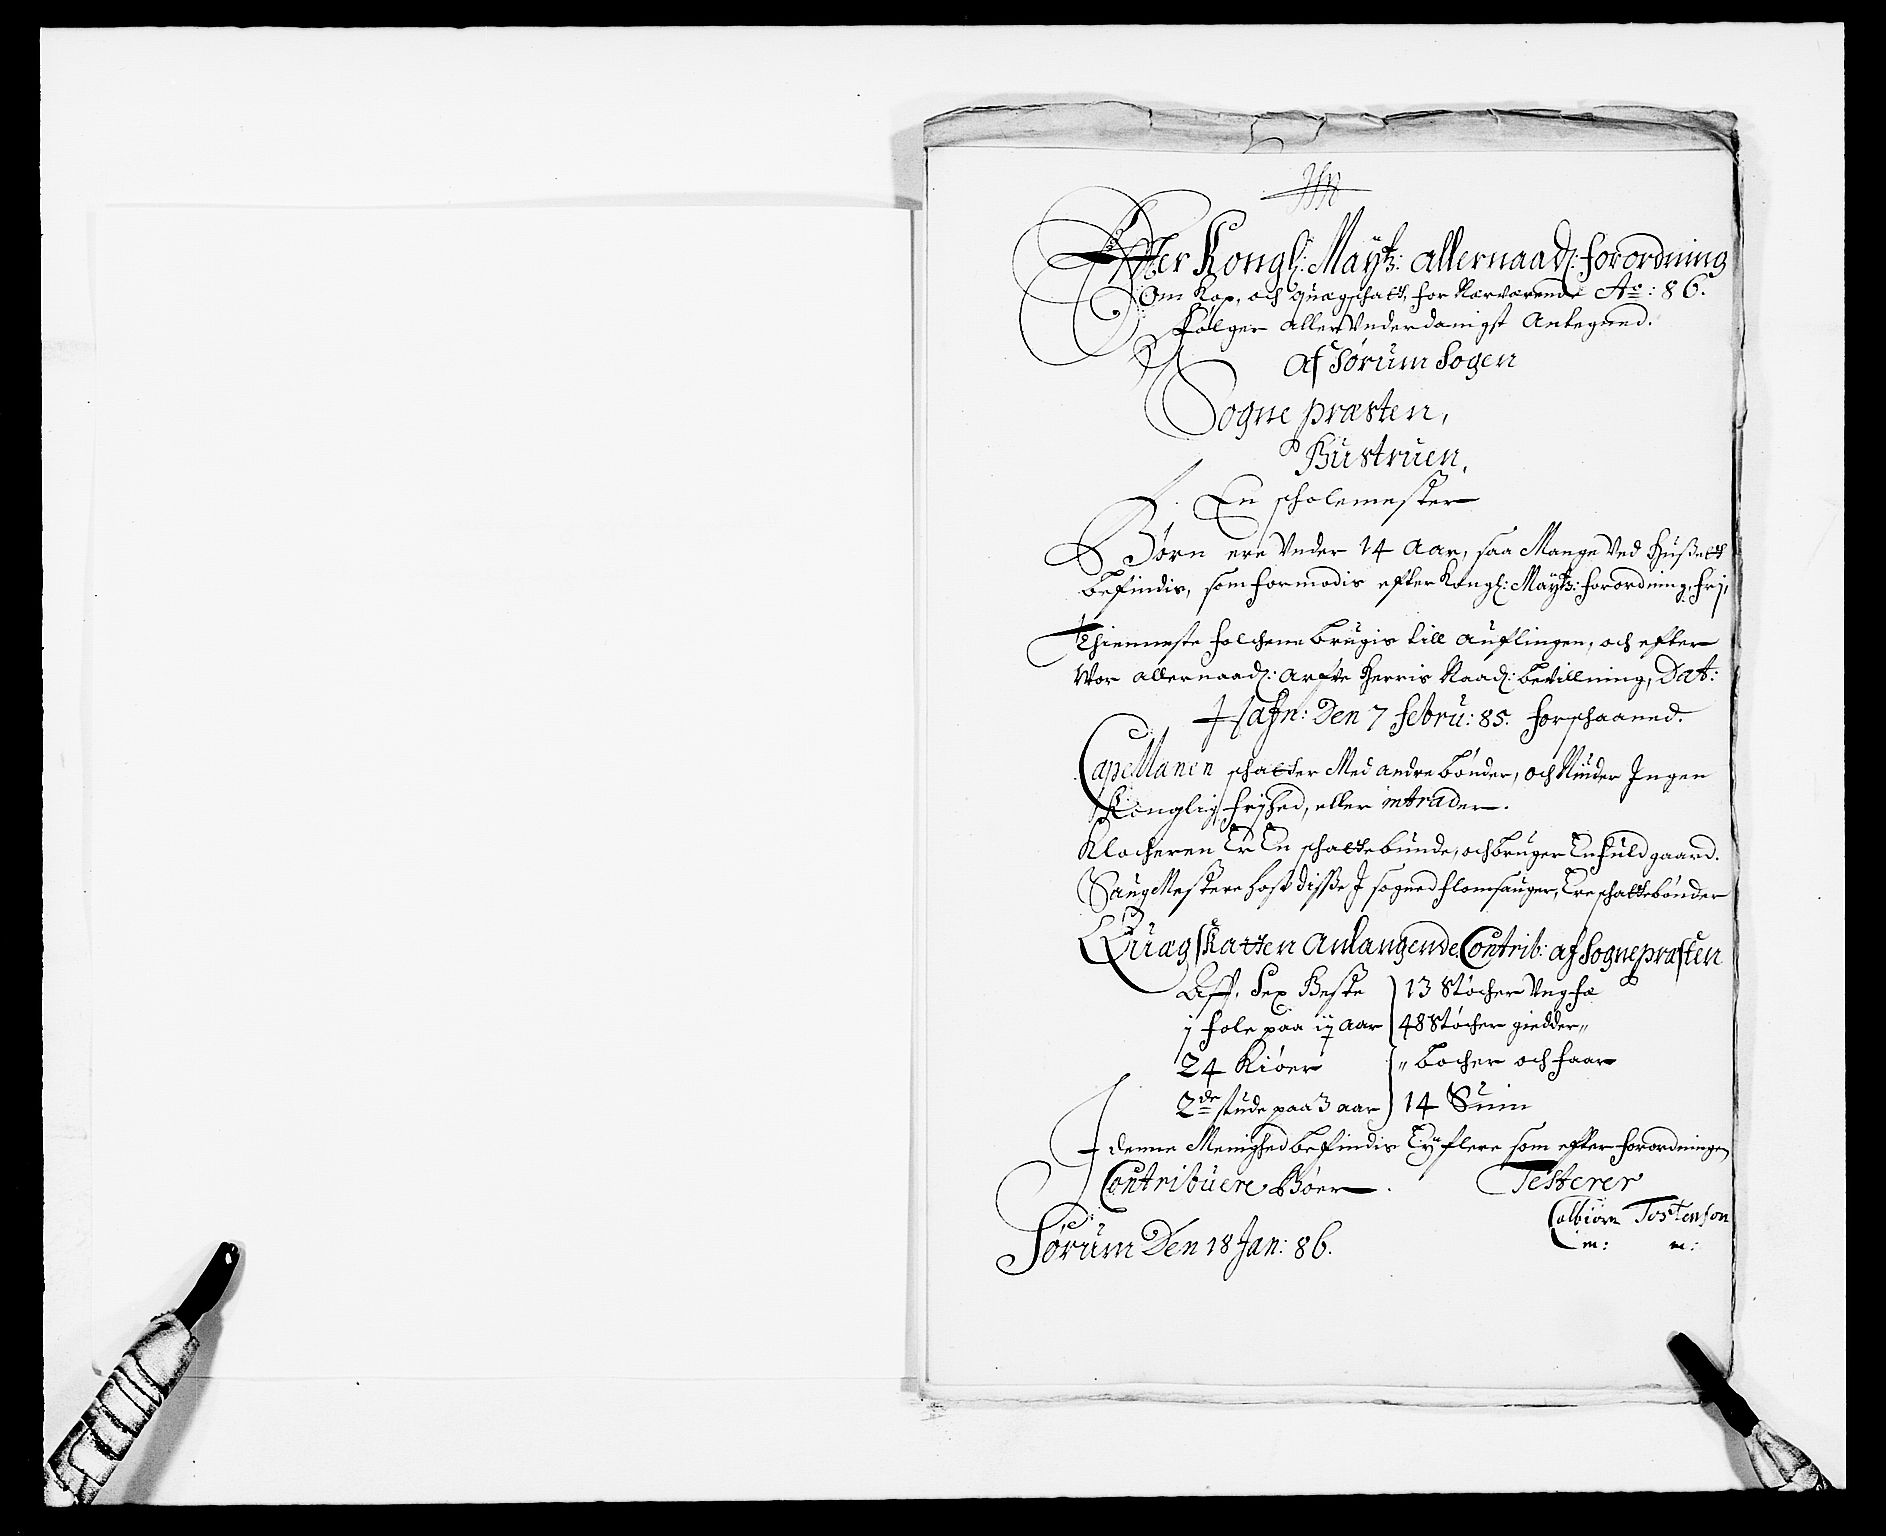 Effter Kongl: Maytz: allernaadl: forordning
Om Kop, och quægschatt, for Nærværende Ao: 86.
Følger aller Vnderdanigst Antegned.
Af Sørum Sogen
Sogne præsten,
Hustruen,
En scholemester
Børn ere Vnder 14 Aar, saa Mange Ved Hußett
befindis, som formodis efter Kongl: Maytz: forordning, frj,
Thienneste folchene brugis till auflingen, och efter
Vor allernaadl: Arfve Herris Naadl: bevillning, Dat:
Hafn: Den 7 febru: 85. forschaaned.
Capellanen schatter Med andre bønder, och Niuder Ingen
Konglig frjhed, eller intrader.
Klocheren Er En schattebunde, och bruger En fuld gaard.
Saug Mestere hoß disße J sogned flomsauger, Ere schattebønder
Quægskatten Anlangende Contrib: af Sognepræsten
Aff, Sex Heste 13 Støcher Vngfæ
1 fole paa 1½ aar 48 Støcher giedder,,
24 Kiøer ,, bocher och faar
2de stude paa 3 aar 14 Suin
J denne Menighed befindis Ey flere som efter forordningen
Contribuere Bøer. Testerer
Colbiørn Tostenson
m: m:
Sørum Den 18 Jan: 86.